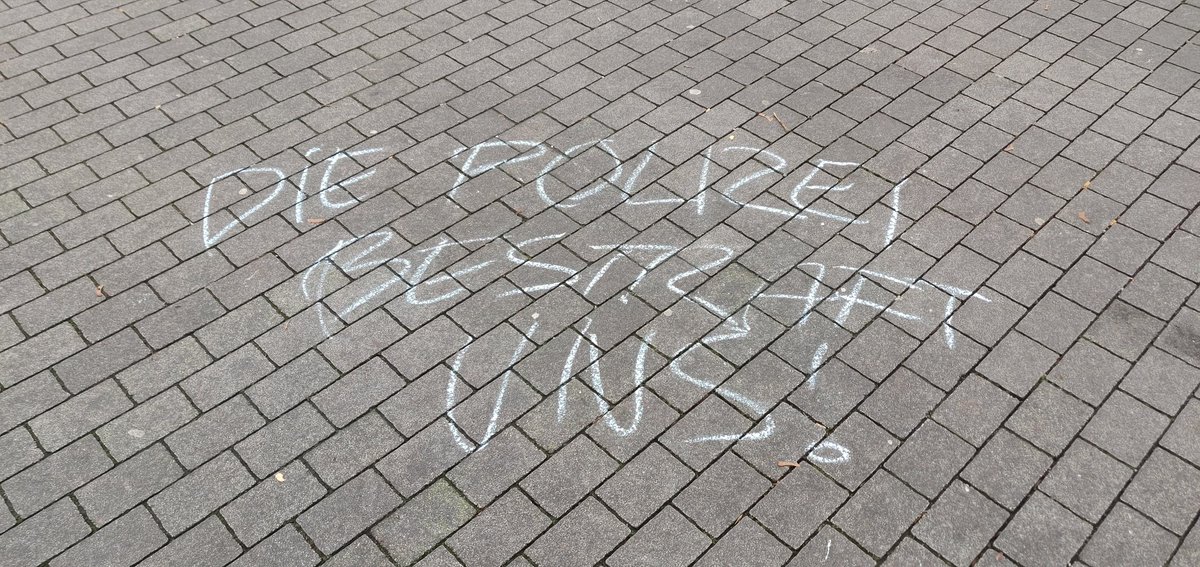 DiE POLIZEI
BESTRAFT
UNS!